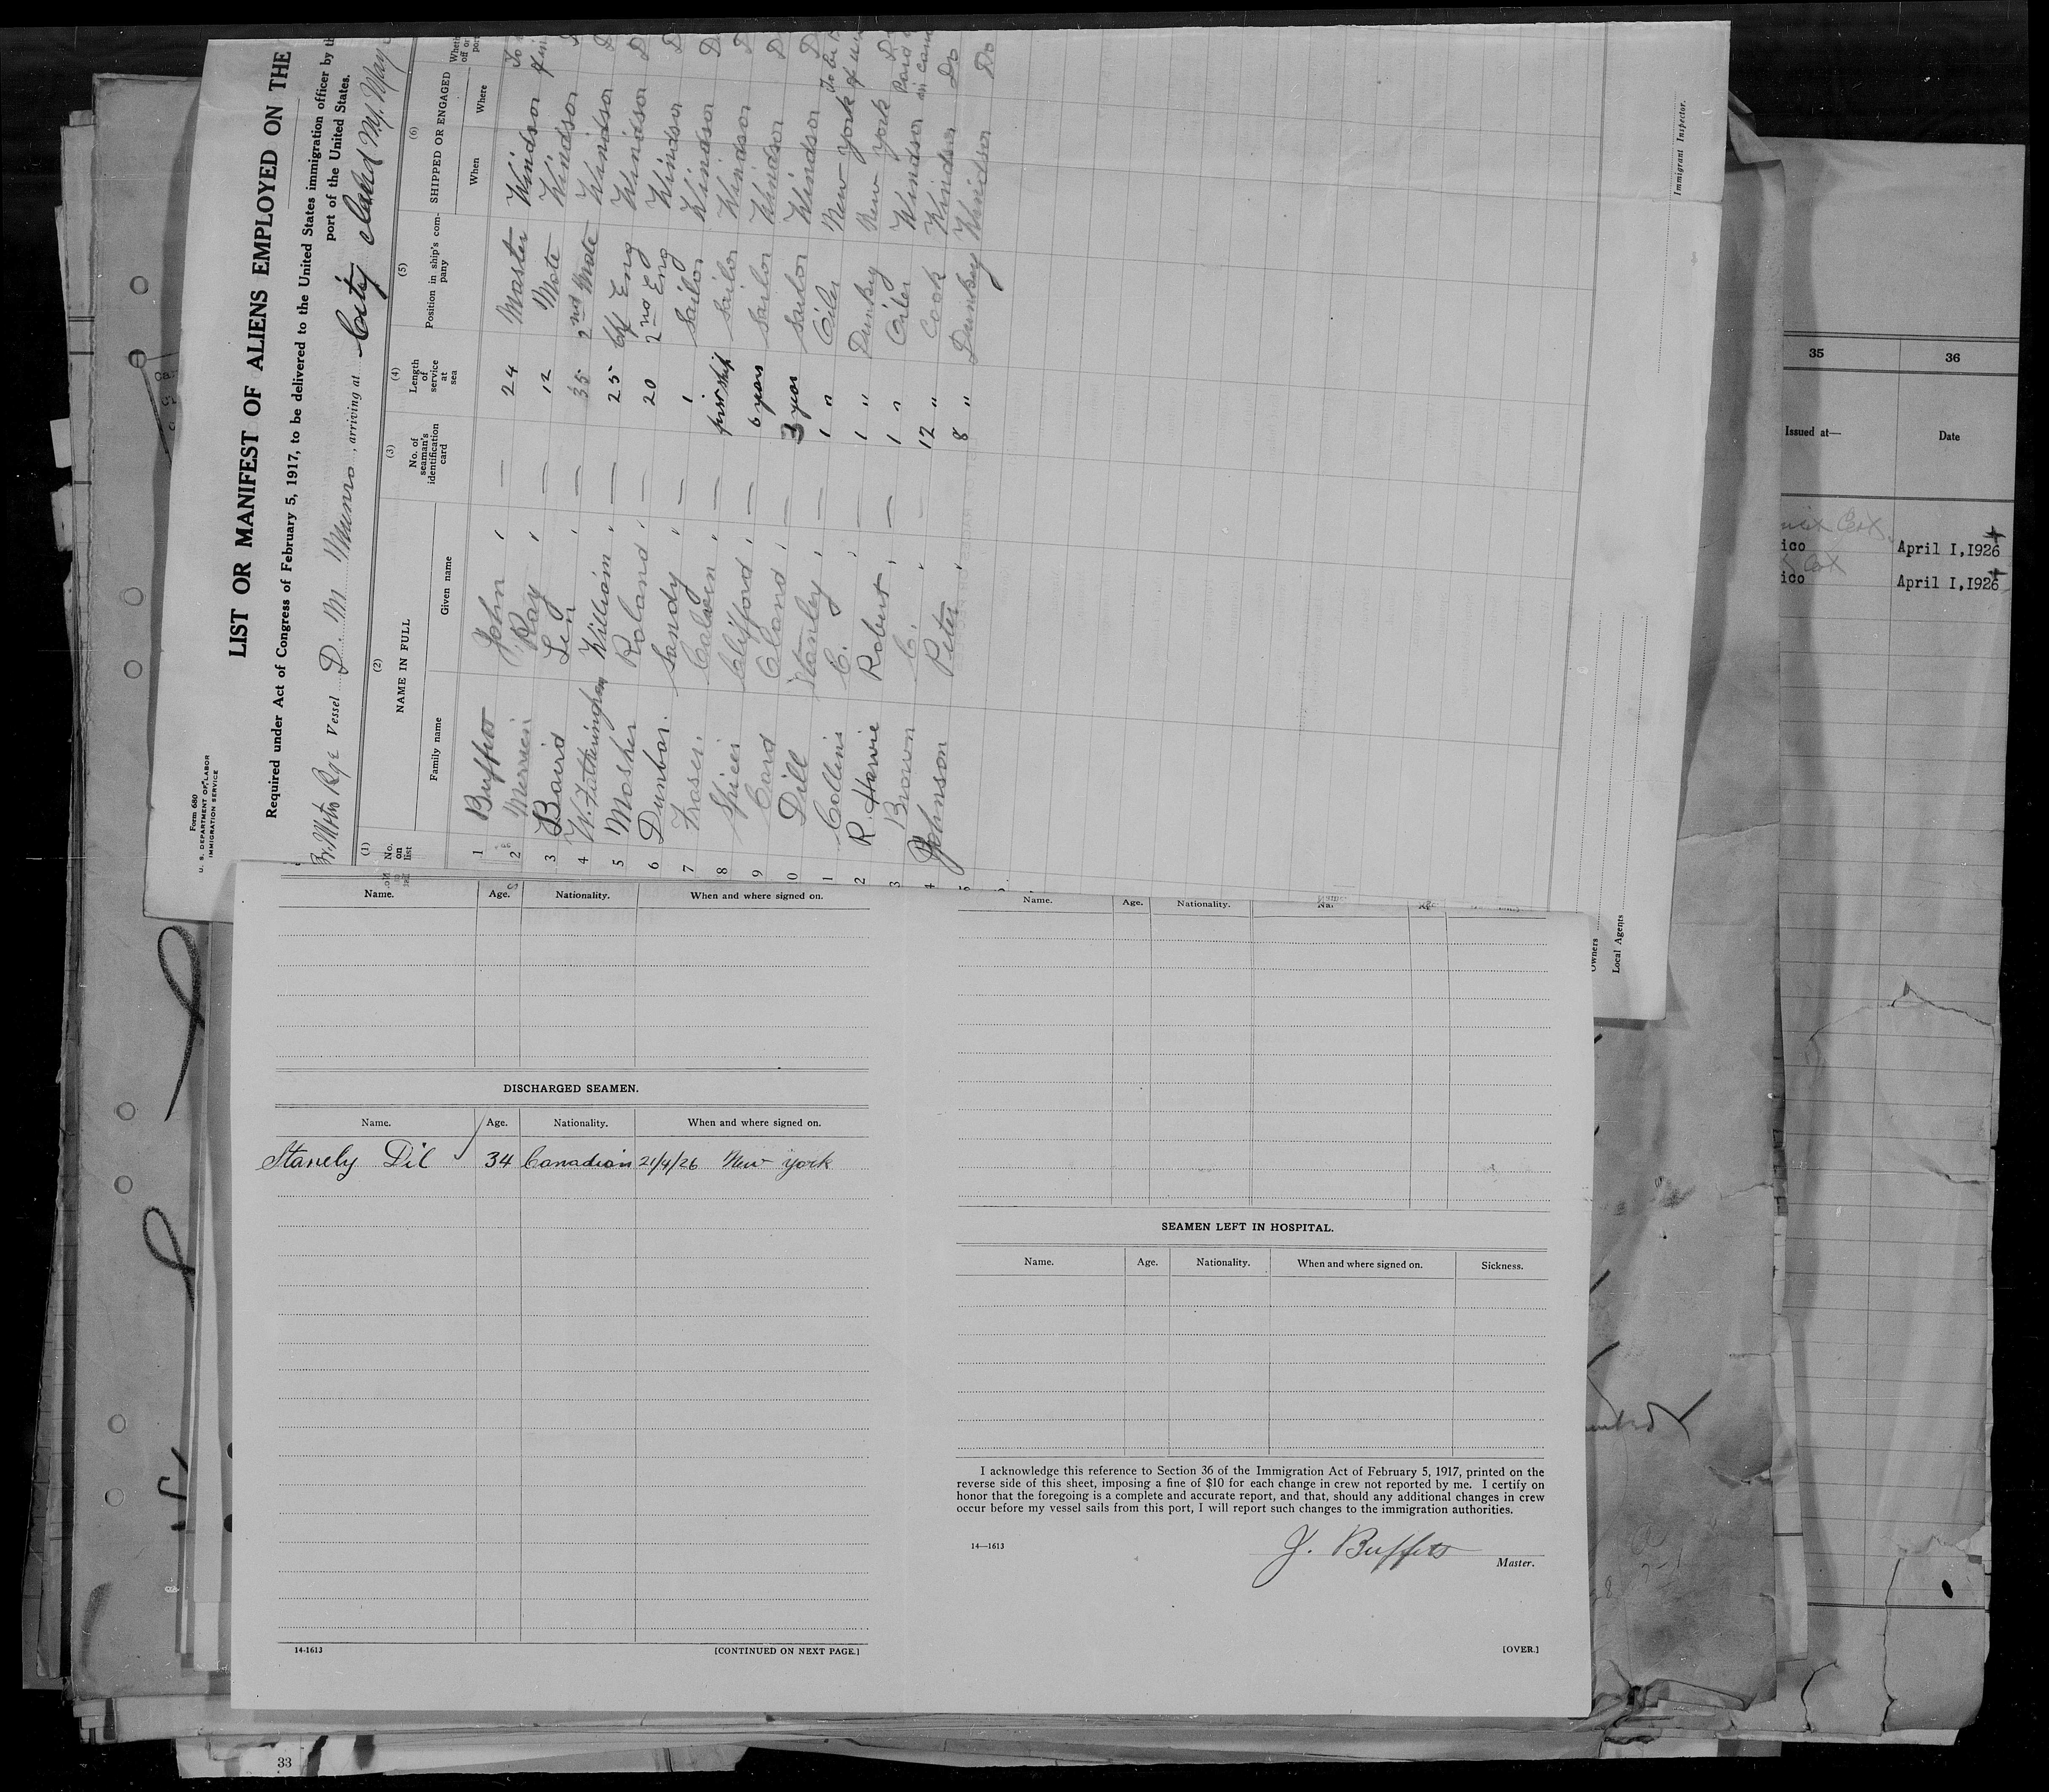 Form 680
U. S. DEPARTMENT OF LABOR
IMMIGRATION SERVICE
LIST OR MANIFEST OF ALIENS EMPLOYED ON THE
Required under Act of Congress of February 5, 1917, to be delivered to the United States immigration officer by th
port of the United States.
Vessel D. M. Munro, arriving at City Island N.Y. May
(1) (2) (3) (4) (5) (6)
No. on list NAME IN FULL No. of seaman's identification card Length of service at sea Position in ship's company SHIPPED OR ENGAGED
Family name Given name When Where
1 Buffett John — 24 Master Windsor
2 Ray — 12 Mate Windsor
3 Baird Len — 35 2nd Mate Windsor
4 W. Fatheringham William — 25 Eng Windsor
5 Mosher Roland — 20 2nd Eng Windsor
6 Dunbar Sandy — 1 Sailor Windsor
7 Fraser Calvin — first ship Sailor Windsor
8 Spicer Clifford — 6 years Sailor Windsor
9 Card Claud — 3 years Sailor Windsor
0 Dill Stanley — 1 " Oiler New York
1 Collins C. — 1 " Dunkey New York
2 R. Harvie Robert — 1 " Oiler Windsor
3 Brown C. — 12 " Cook Windsor Do
4 Johnson Peter 8 " Dunkey Windsor Do
Immigrant Inspector.
Owners
Local Agents
35 36
Issued at— Date
ico April 1,1926
ico April 1,1926
Name. Age. Nationality. When and where signed on.
DISCHARGED SEAMEN.
Name. Age. Nationality. When and where signed on.
Stanely Dil 34 Canadian 21/4/26 New York
14-1613 [CONTINUED ON NEXT PAGE.]
Name. Age. Nationality.
SEAMEN LEFT IN HOSPITAL.
Name. Age. Nationality. When and where signed on. Sickness.
I acknowledge this reference to Section 36 of the Immigration Act of February 5, 1917, printed on the
reverse side of this sheet, imposing a fine of $10 for each change in crew not reported by me. I certify on
honor that the foregoing is a complete and accurate report, and that, should any additional changes in crew
occur before my vessel sails from this port, I will report such changes to the immigration authorities.
14—1613
J. Buffett
Master.
[OVER.]
33